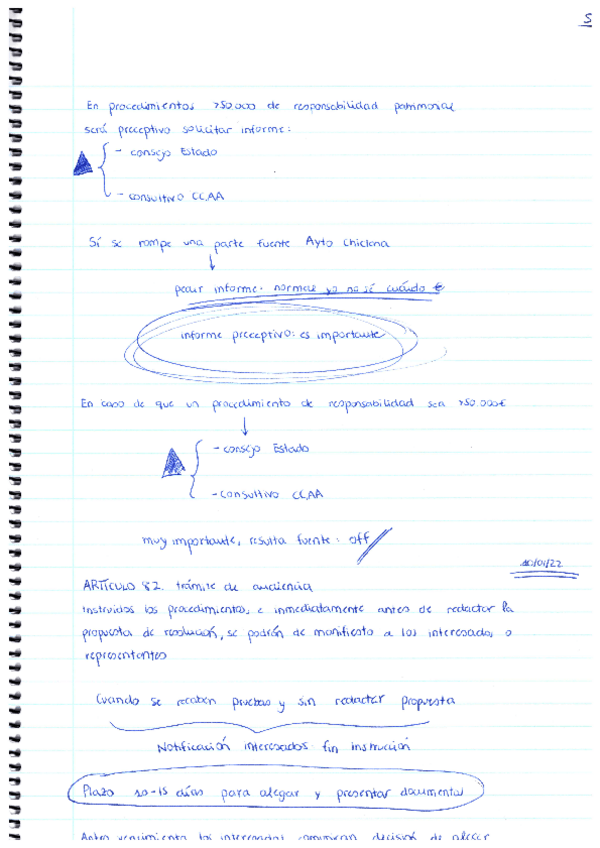 5
En procedimientos >50.000 de responsabilidad patrimonial
será preceptivo solicitar informe:
- consejo Estado
- consultivo CCAA
Si se rompe una parte fuente Ayto Chiclana
pedir informe: normal yo no sé cuándo €
informe preceptivo: es importante
En caso de que un procedimiento de responsabilidad sea >50.000€
- consejo Estado
- consultivo CCAA
muy importante, resulta fuente: off
10/01/22
ARTÍCULO 82. trámite de audiencia
Instruidos los procedimientos, e inmediatamente antes de redactar la
propuesta de resolución, se podrán de manifiesto a los interesados o
representantes
Cuando se recaben pruebas y sin redactar propuesta
Notificación interesados fin instrucción
Plazo 10-15 días para alegar y presentar documental
Antes vencimiento los interesados comunican decisión de alegar